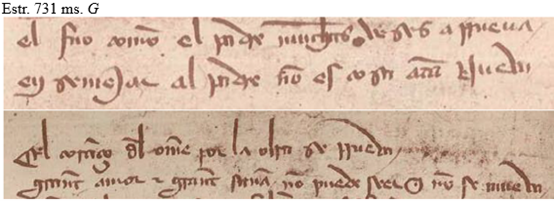 Estr. 731 ms. G
el fijo como el padre muchas vezes a prueua
en semejar al padre nō es cosa atā nueua
El coraçō dl ome por la obra se prueua
grant amor e grant saña nō puede ser q̄ nō se mueua